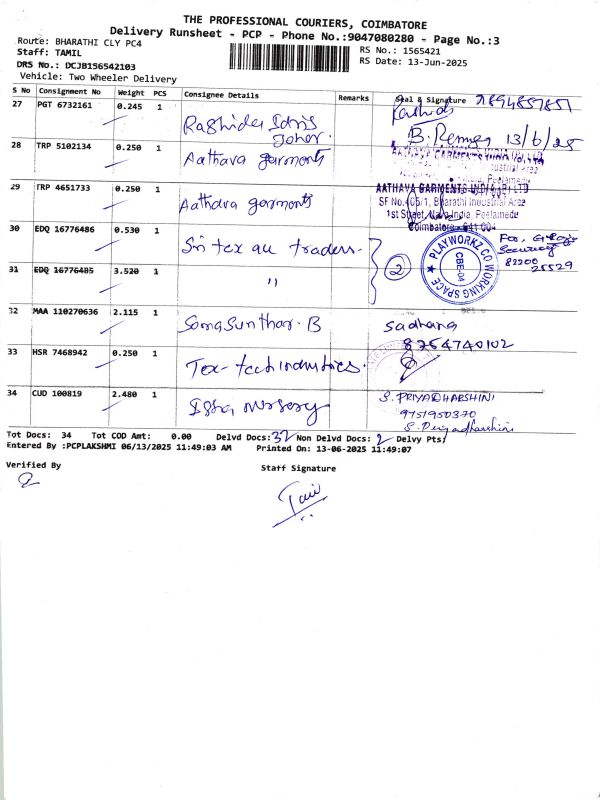 THE PROFESSIONAL COURIERS, COIMBATORE
Delivery Runsheet - PCP - Phone No.:9047080280 - Page No.:3
Route: BHARATHI CLY PC4
RS No.: 1565421
Staff: TAMIL
RS Date: 13-Jun-2025
DRS No.: DCJB156542103
Vehicle: Two Wheeler Delivery
S No Consignment No Weight PCS Consignee Details Remarks Seal & Signature 9894857851
27 PGT 6732161 0.245 1 Rashida Idris Johar. Rashida
28 TRP 5102134 0.250 1 Aathava garments 13/6/25
AATHAVA GARMENTS INDIA (P) LTD
29 TRP 4651733 0.250 1 Aathava garments
AATHAVA GARMENTS INDIA (P) LTD
SF No.405/1, Bharathi Industrial Area
1st Street, Nava India, Peelamedu
Coimbatore - 641 004
30 EDQ 16776486 0.530 1 Sri tex au traders.
2
PLAYWORKZ CO WORKING SPACE
CBE-04
For,
Security
82200
25529
31 EDQ 16776485 3.520 1 "
32 MAA 110270636 2.115 1 Somasunthar. B
Sadhana
8754740102
33 HSR 7468942 0.250 1 Tex-tech industries.
34 CUD 100819 2.480 1 Isha nursery
S. PRIYADHARSHINI
9751950370
S. Priyadharshini
Tot Docs: 34 Tot COD Amt: 0.00 Delvd Docs: 32 Non Delvd Docs: 2 Delvy Pts:
Entered By :PCPLAKSHMI 06/13/2025 11:49:03 AM Printed On: 13-06-2025 11:49:07
Verified By
Staff Signature